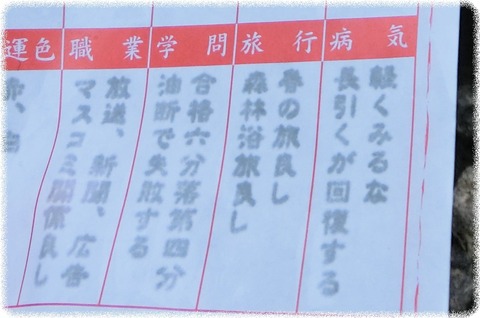 病気
軽くみるな
長引くが回復する
旅行
春の旅良し
森林浴旅良し
学問
合格六分落第四分
油断で失敗する
職業
放送、新聞、広告
マスコミ関係良し
運色